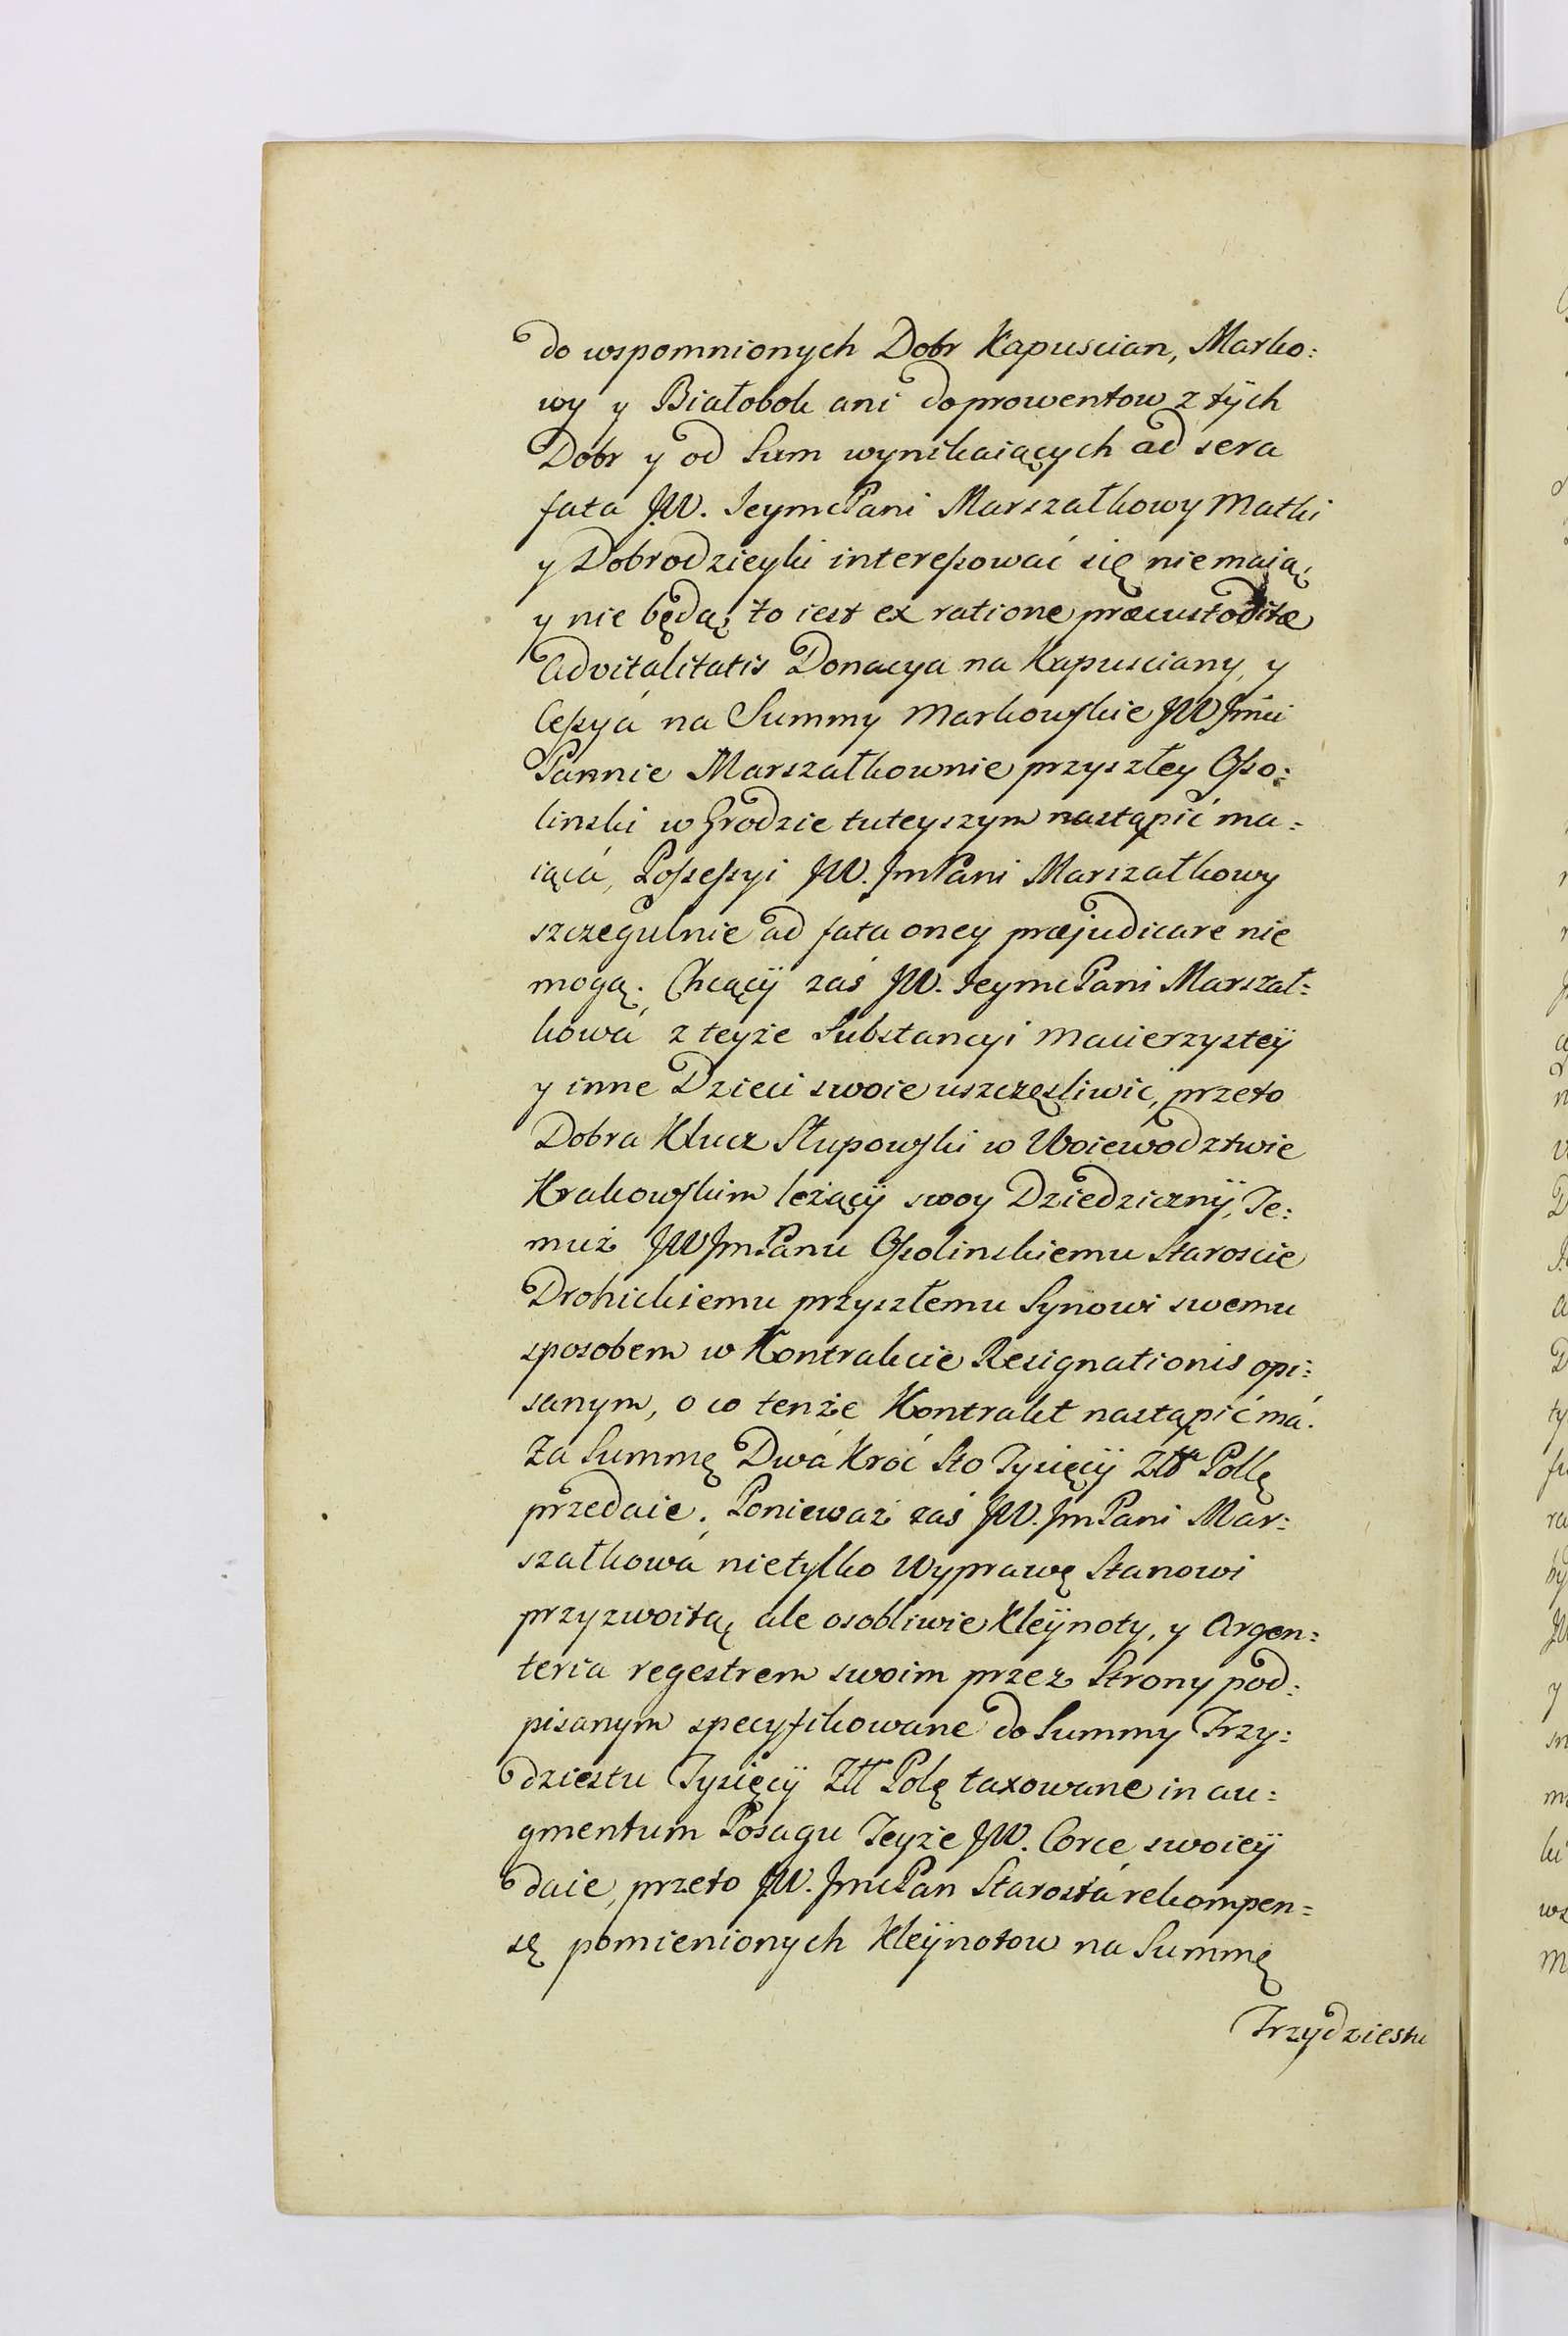 do wspomnionych Dobr Kapuscian, Marko:
wy y Białobok ani do prowentow z tÿch
Dobr y od Sum wynikaiących ad sera
fata JW. JeymcPani Marszałkowy Matki
y Dobrodzieyki interessować się nie maią,
y nie będą; to iest ex ratione præcustoditæ
Advitalitatis Donacya na Kapusciany, y
Cessyá na Summy Markowskie JW Jmci
Pannie Marszałkownie przyszłey Osso:
linski w Grodzie tuteyszym nastąpić ma:
iącá, Possessyi JW. JmPani Marszałkowy
szczegulnie ad fata oney præjudicare nie
mogą. Chcącÿ zaś JW. JeymcPani Marszał:
kowá z teyże Substancyi Macierzysteÿ
y inne Dzieci swoie uszczęsliwić, przeto
Dobra Klucz Słupowski w Woiewodztwie
Krakowskim leżącÿ swoy Dziedzicznÿ, Te:
muż JWJmPanu Ossolinskiemu Staroscie
Drohickiemu przyszłemu Synowi swemu
sposobem w Kontrakcie Resignationis opi:
sanym, o co tenże Kontrakt nastąpić má.
Za Summę Dwá Kroć Sto Tysięcÿ Złł Polł
przedaie. Ponieważ zaś JW. JmPani Mar:
szałkowá nietylko Wyprawę Stanowi
przyzwoitą, ale osobliwie Kleÿnoty, y Argen:
teria regestrem swoim przez Strony pod:
pisanym specyfikowane do Summy Trzy:
dziestu Tysięcÿ Złł Pol taxowane in au:
gmentum Posagu Teyże JW. Corce swoieÿ
daie, przeto JW. JmcPan Starostá rekompen:
sę pomienionych Kleÿnotow na Summę
Trzydziestu